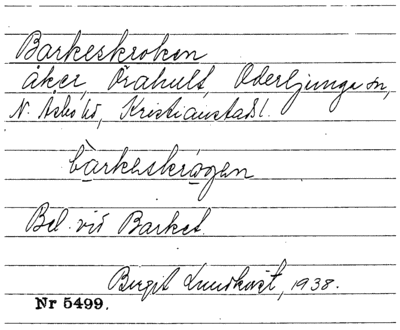 Barkeskroken
åker, Örahult, Oderljunga sn,
N. Åsbo hd, Kristianstads l.
bàrkeskrǫgen
Bel. vid Barket.
Birgit Lundkvist, 1938.
Nr 5499.